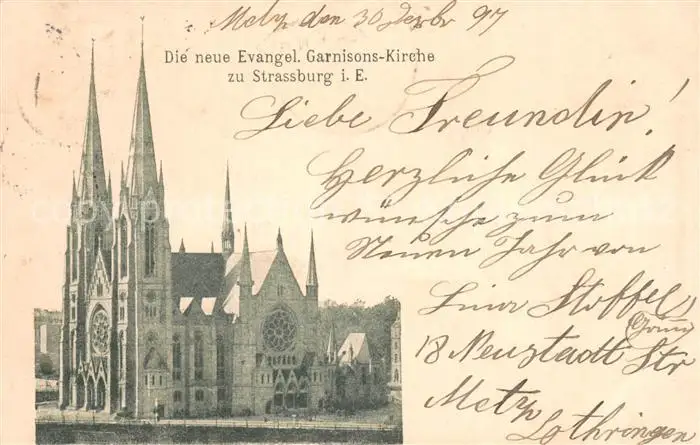 Metz den 30 Dezbr 97
Die neue Evangel. Garnisons-Kirche
zu Strassburg i. E.
Liebe Freundin!
Herzliche Glück
wünsche zum
Neuen Jahr von
Lina Stoffel,
18 Neustadt Str
Metz
Lothringen